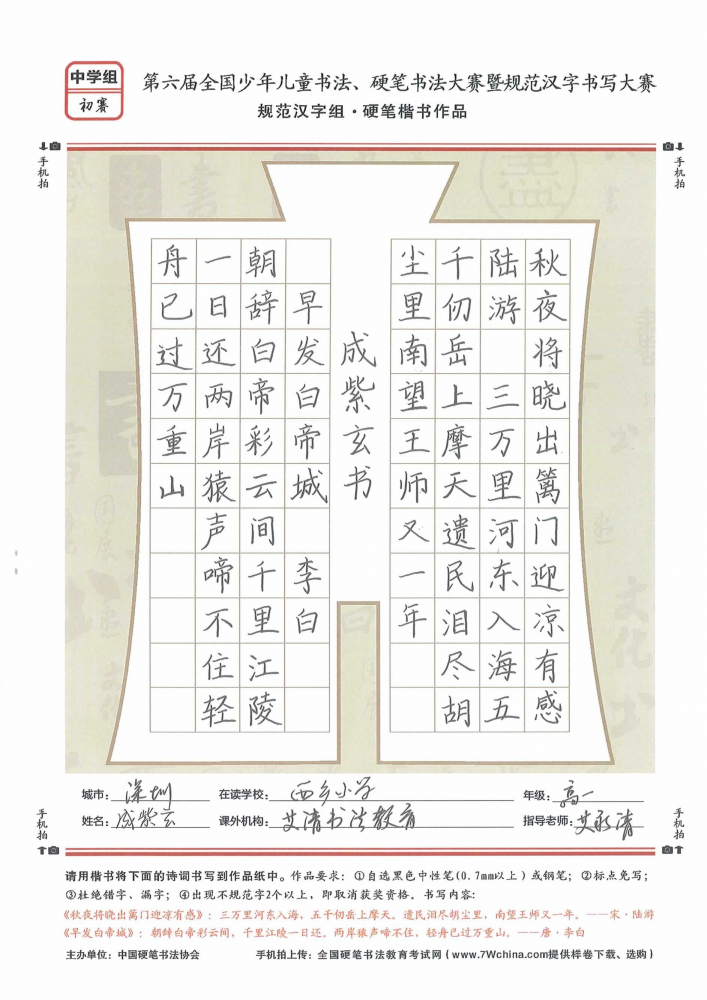 中学组
初赛
第六届全国少年儿童书法、硬笔书法大赛暨规范汉字书写大赛
规范汉字组·硬笔楷书作品
手机拍
手机拍
秋夜将晓出篱门迎凉有感
陆游 三万里河东入海五
千仞岳上摩天遗民泪尽胡
尘里南望王师又一年
成紫玄书
早发白帝城 李白
朝辞白帝彩云间千里江陵
一日还两岸猿声啼不住轻
舟已过万重山
城市：深圳 在读学校：西乡小学 年级：高一
姓名：成紫玄 课外机构：艾清书法教育 指导老师：艾永清
手机拍
手机拍
请用楷书将下面的诗词书写到作品纸中。作品要求：①自选黑色中性笔(0.7mm以上)或钢笔；②标点免写；
③杜绝错字、漏字；④出现不规范字2个以上，即取消获奖资格。书写内容：
《秋夜将晓出篱门迎凉有感》：三万里河东入海，五千仞岳上摩天。遗民泪尽胡尘里，南望王师又一年。——宋·陆游
《早发白帝城》：朝辞白帝彩云间，千里江陵一日还。两岸猿声啼不住，轻舟已过万重山。——唐·李白
主办单位：中国硬笔书法协会 手机拍上传：全国硬笔书法教育考试网(www.7Wchina.com提供样卷下载、选购)